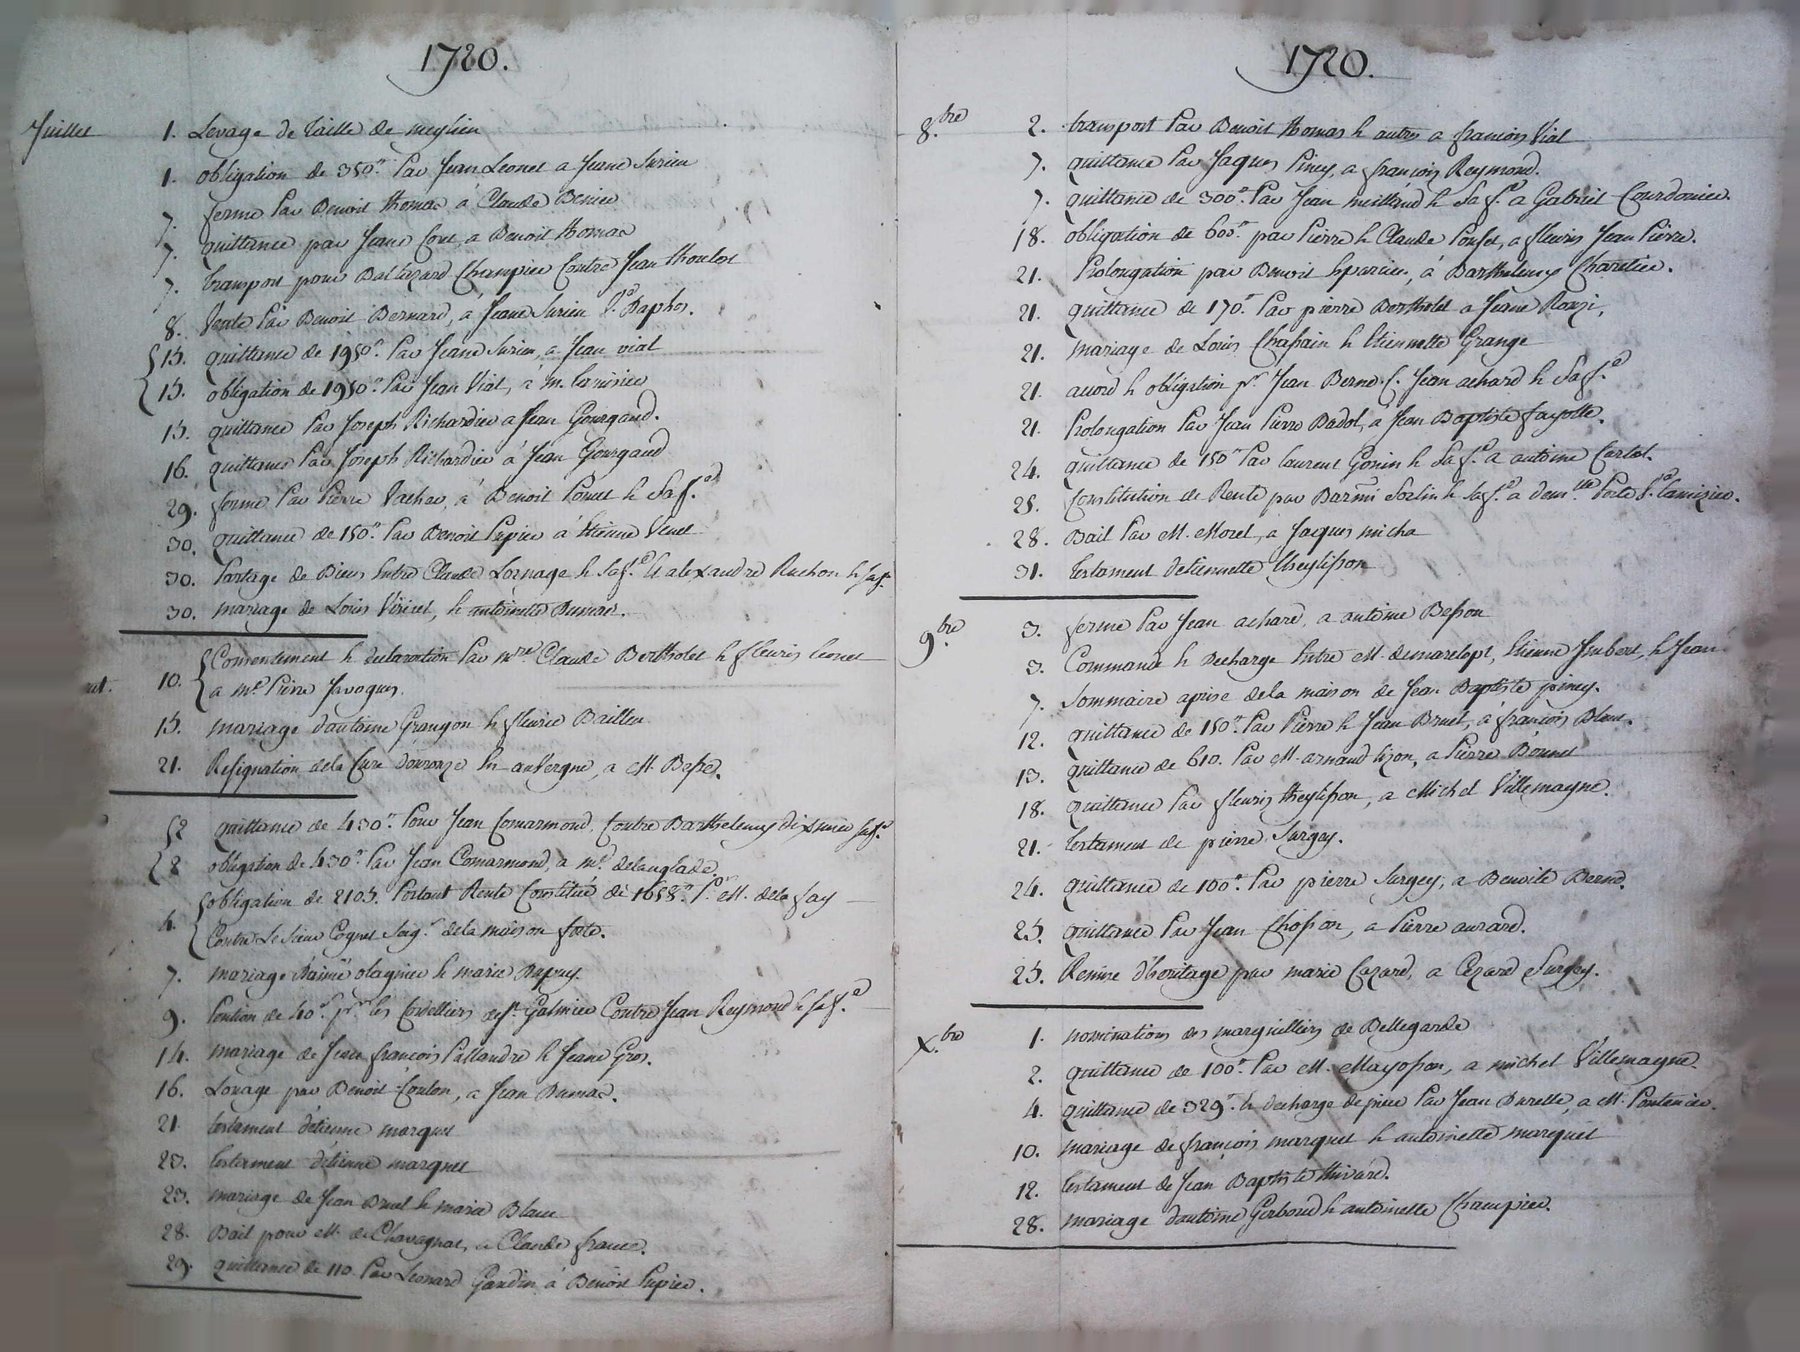 1720.
Juillet 1. Levage de taille de meylieu
1. obligation de 350.tt Par Jean Leonet a Jeane Surieu
7. ferme Par Benoit thomas à Claude Benier
7. quittance par Jeane Cour, a Benoit thomas
7. transport pour Baltazard Champier Contre Jean thoulet
8. Vente Par Benoit Bernard, a Jeane Surieu V.e Baphos.
15. quittance de 1950.tt Par Jeane Surieu, a Jean vial
15. obligation de 1950.tt Par Jean Vial, à m. lamisier
15. quittance Par Joseph Richardier a Jean Gourgaud.
16. quittance Par Joseph Richardier à Jean Gourgaud
29. ferme Par Pierre Vachar, à Benoit Poncet & Sa f.e
30. quittance de 150.tt Par Benoit Pupier à Etienne Venet
30. Partage de Biens Entre Claude Lornage & Sa f.e Et alexandre Ruchon & Sa f.e
30. mariage de Louis Viricel, & antoinette Dumas.
10. Consendement & declaration Par m.re Claude Berthollet & fleurie leonet
a m.e Pierre Javogues.
15. mariage d'antoine Grangon & fleurie Baillieu
21. Resignation de la Cure en auvergne, a M. Besse.
2 quittance de 430.tt Pour Jean Comarmond, Contre Barthelemy dixmier & sa f.e
8 obligation de 430.tt Par Jean Comarmond, a m.e delanglade.
4. obligation de 2105. Portant Rente Constituée de 1658.tt P.r M. de la fay
Contre Le Sieur Cognet Seig.r de la maison forte.
7. mariage d'aimé olagnier & marie Dupuy.
9. Pention de 40.tt p.r les Cordelliers de St Galmier Contre Jean Reymond & sa f.e
14. mariage de Jean françois Pallandre & Jeane Gros.
16. Louage par Benoit Coulon, a Jean Dumas.
21. testament d'étienne marquet
23. testament d'étienne marquet
23. mariage de Jean Bruel & marie Blanc
28. Bail pour M. de Chavagnac, a Claude france.
29. quittance de 110. Par Leonard Gaudin à Benoit Pupier.
1720.
8.bre 2. transport Par Benoit thomas & autres a françois Vial
7. quittance Par Jaques Piney, a françois Reymond.
7. quittance de 300.tt Par Jean meilland & Sa f.e a Gabriel Courdonier.
18. obligation de 600.tt par Pierre & Claude Ponset, a fleurie Jean Pierre.
21. Prolongation par Benoit Eparcieu, à Barthelemy Charetier.
21. quittance de 170.tt Par pierre Berthollet a Jeane Ronzi,
21. mariage de Louis Chassain & Etiennette Grange
21. acord & obligation p.r Jean Bernd. C. Jean achard & Sa f.e
21. Prolongation Par Jean Pierre Badol, a Jean Baptiste fayolle.
24. quittance de 150.tt Par laurent Gonin & Sa f.e a antoine Carlat.
25. Constitution de Rente par Barmi Sorlin & Sa f.e a dem.lle Porte V.e lamizier.
28. Bail Par M. Morel, a Jaques micha
31. testament d'etiennette theylisson
9.bre 3. ferme Par Jean achard, a antoine Besson
3. Commande & decharge Entre M. demarclopt, Etienne Imbert, & Jean
7. Sommaire aprise de la maison de Jean Baptiste piney.
12. quittance de 150.tt Par Pierre & Jean Bruel, à françois Blanc.
13. quittance de 610. Par M. arnaud lizon, a Pierre Bonnet
18. quittance Par fleurie theylisson, a Michel Villemagne.
21. testament de pierre Surgey.
24. quittance de 100.tt Par pierre Surgey, a Benoite Bernd.
25. quittance Par Jean Chosson, a Pierre aurard.
25. Remise d'héritage par marie Cazard, a Cezard Surgey.
X.bre 1. nominations des marguilliers de Bellegarde
2. quittance de 100.tt Par M. Mayosson, a michel Villemagne.
4. quittance de 329.tt & decharge de piece Par Jean Durelle, a M. Pontanier.
10. mariage de françois marquet & antoinette marquet
12. testament de Jean Baptiste thivard.
28. mariage d'antoine Gerboud & antoinette Champier.